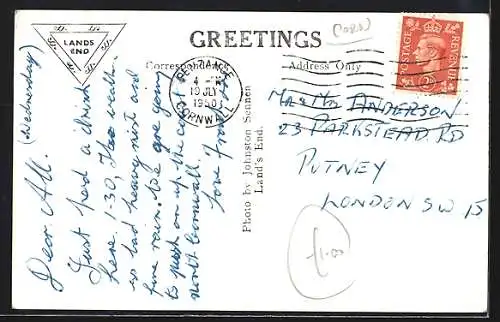 LANDS
END
GREETINGS
Correspondence
Address Only
PENZANCE
4 - PM
19 JLY
1950
CORNWALL
POSTAGE
REVENUE
(Wednesday)
Dear All.
Just had a drink
here. 1-30, The weather
is bad heavy mist and
fine rain. We are going
to push on up the coast
north Cornwall.
love from
Photo by Johnston Sennen
Land's End.
Mr & Mrs ANDERSON
23 PARKSTEAD RD
PUTNEY
LONDON SW 15
£1-00